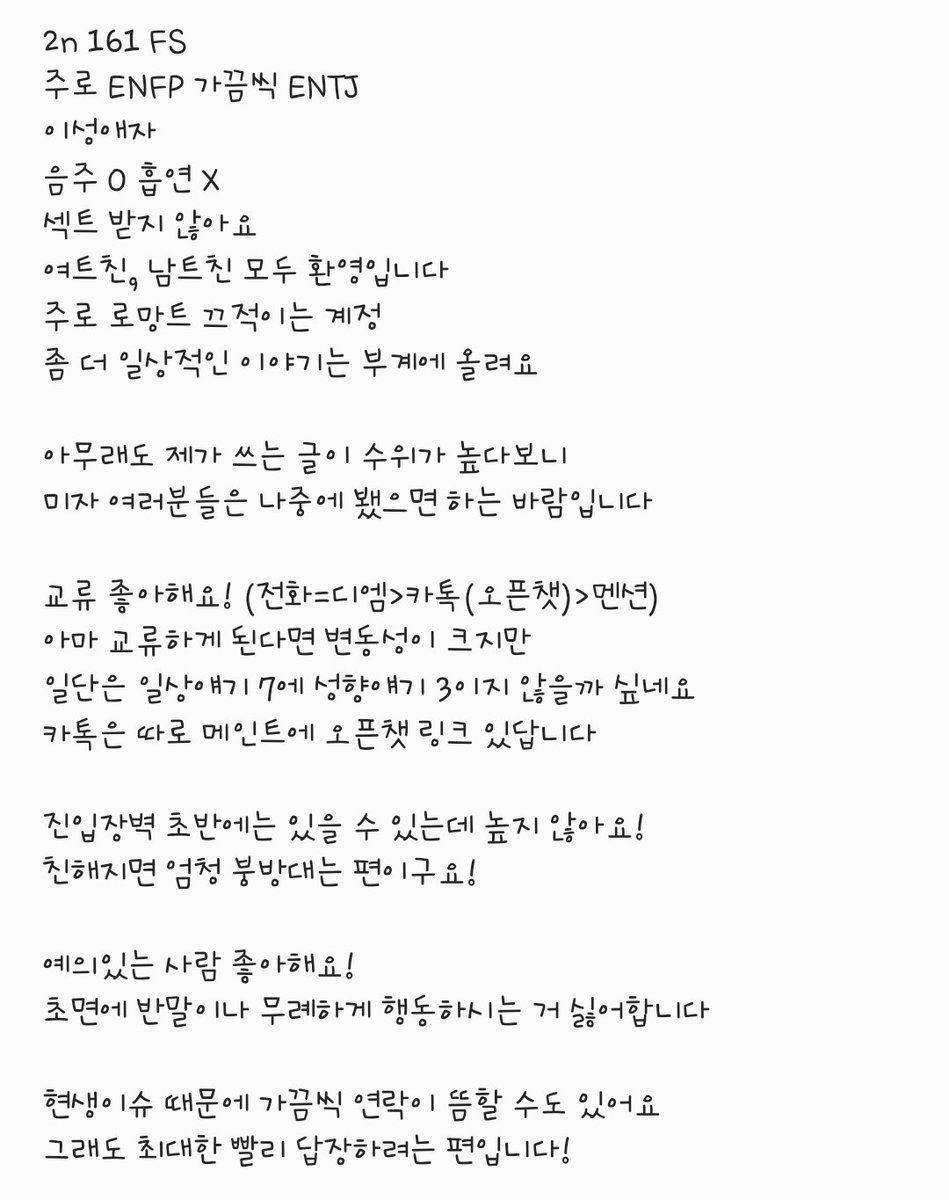 2n 161 FS
주로 ENFP 가끔씩 ENTJ
이성애자
음주 O 흡연 X
섹트 받지 않아요
여트친, 남트친 모두 환영입니다
주로 로망트 끄적이는 계정
좀 더 일상적인 이야기는 부계에 올려요
아무래도 제가 쓰는 글이 수위가 높다보니
미자 여러분들은 나중에 뵀으면 하는 바람입니다
교류 좋아해요! (전화=디엠>카톡(오픈챗)>멘션)
아마 교류하게 된다면 변동성이 크지만
일단은 일상얘기 7에 성향얘기 3이지 않을까 싶네요
카톡은 따로 메인트에 오픈챗 링크 있답니다
진입장벽 초반에는 있을 수 있는데 높지 않아요!
친해지면 엄청 붕방대는 편이구요!
예의있는 사람 좋아해요!
초면에 반말이나 무례하게 행동하시는 거 싫어합니다
현생이슈 때문에 가끔씩 연락이 뜸할 수도 있어요
그래도 최대한 빨리 답장하려는 편입니다!